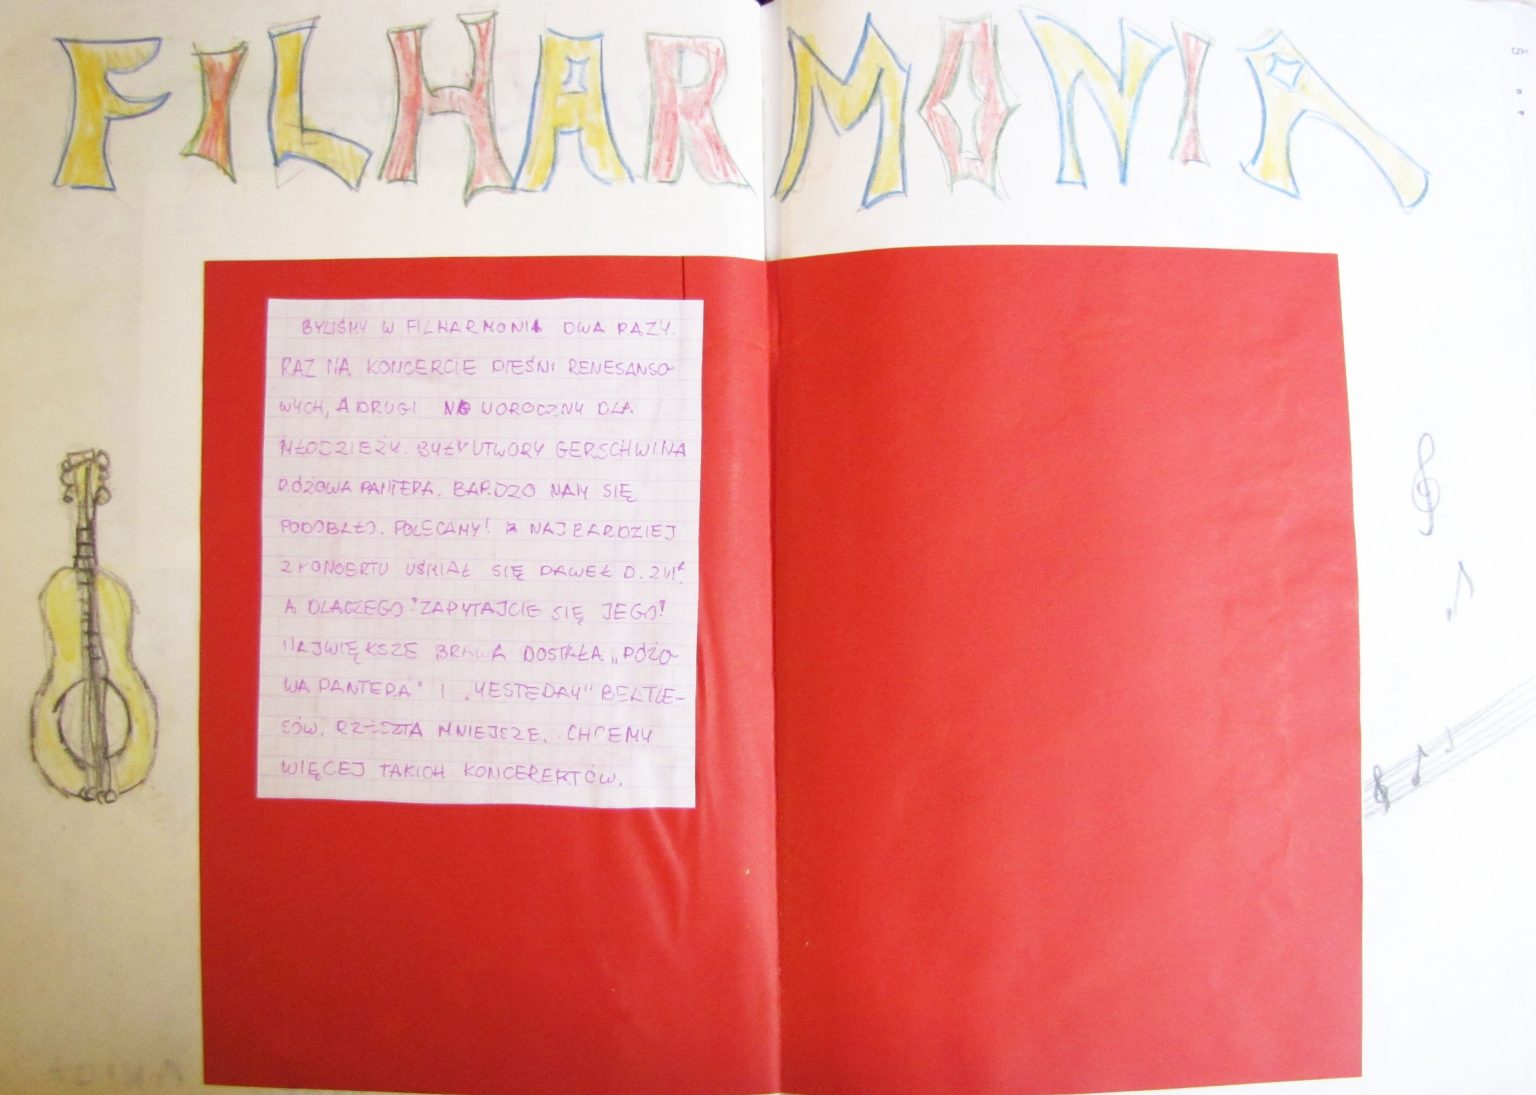 FILHARMONIA
BYLIŚMY W FILHARMONIA DWA RAZY.
RAZ NA KONCERCIE PIEŚNI RENESANSO-
WYCH, A DRUGI NOWOROCZNY DLA
MŁODZIEŻY. BYŁY UTWORY GERSCHWINA
RÓŻOWA PANTERA. BARDZO NAM SIĘ
PODOBAŁO. POLECAMY! NAJBARDZIEJ
Z KONCERTU UŚMIAŁ SIĘ PAWEŁ D. Z VI
A DLACZEGO? ZAPYTAJCIE SIĘ JEGO!
NAJWIĘKSZE BRAWA DOSTAŁA „RÓŻO-
WA PANTERA" I „YESTEDAY" BEATLE-
SÓW. RESZTA MNIEJSZE. CHCEMY
WIĘCEJ TAKICH KONCEREKTÓW.